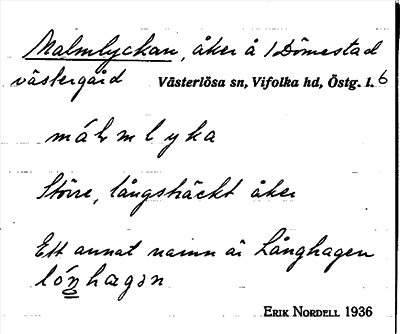 Malmlyckan, åker å 1 Dömestad
västergård Västerlösa sn, Vifolka hd, Östg. l. 6
málmlyka
Större, långsträckt åker
Ett annat namn är Långhagen
lóŋhagən
ERIK NORDELL 1936